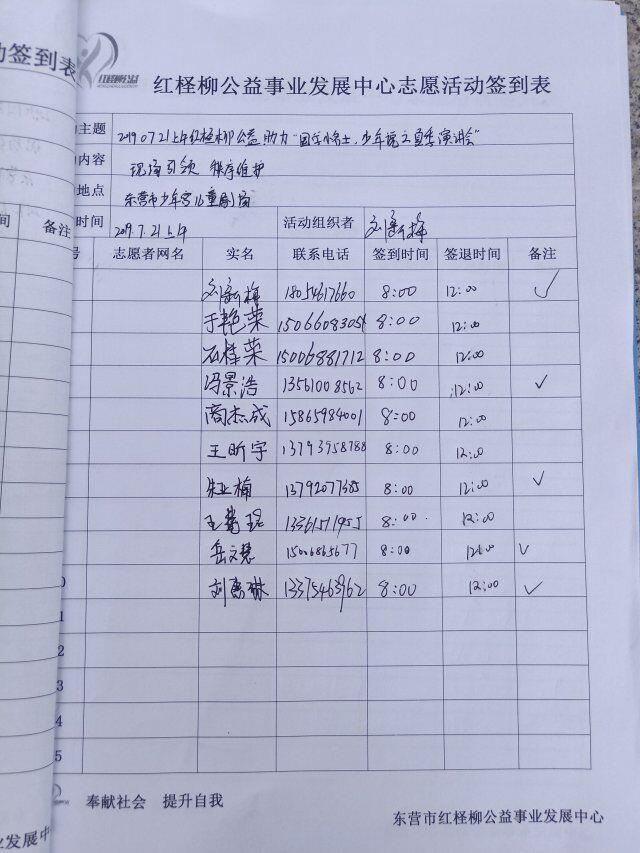 动签到表
间
备注
发展中
红柽柳公益
红柽柳公益事业发展中心志愿活动签到表
主题 2019.07.21上午红柽柳公益助力“国学小名士，少年说之夏季演讲会”
内容 现场引领 秩序维护
地点 东营市少年宫儿童剧场
时间 2019.7.21上午 活动组织者
号 志愿者网名 实名 联系电话 签到时间 签退时间 备注
18054617660 8:00 12:00 ✓
于艳荣 15066083054 8:00 12:00
石桂荣 15006881712 8:00 12:00
冯景浩 13561008562 8:00 12:00 ✓
商杰成 15865984001 8:00 12:00
王昕宇 13793958788 8:00 12:00
朱亚楠 13792077385 8:00 12:00 ✓
13361571955 8:00 12:00
岳文慧 15006865677 8:00 12:00 ✓
刘惠琳 13375463962 8:00 12:00 ✓
0
1
2
3
4
5
奉献社会 提升自我
东营市红柽柳公益事业发展中心